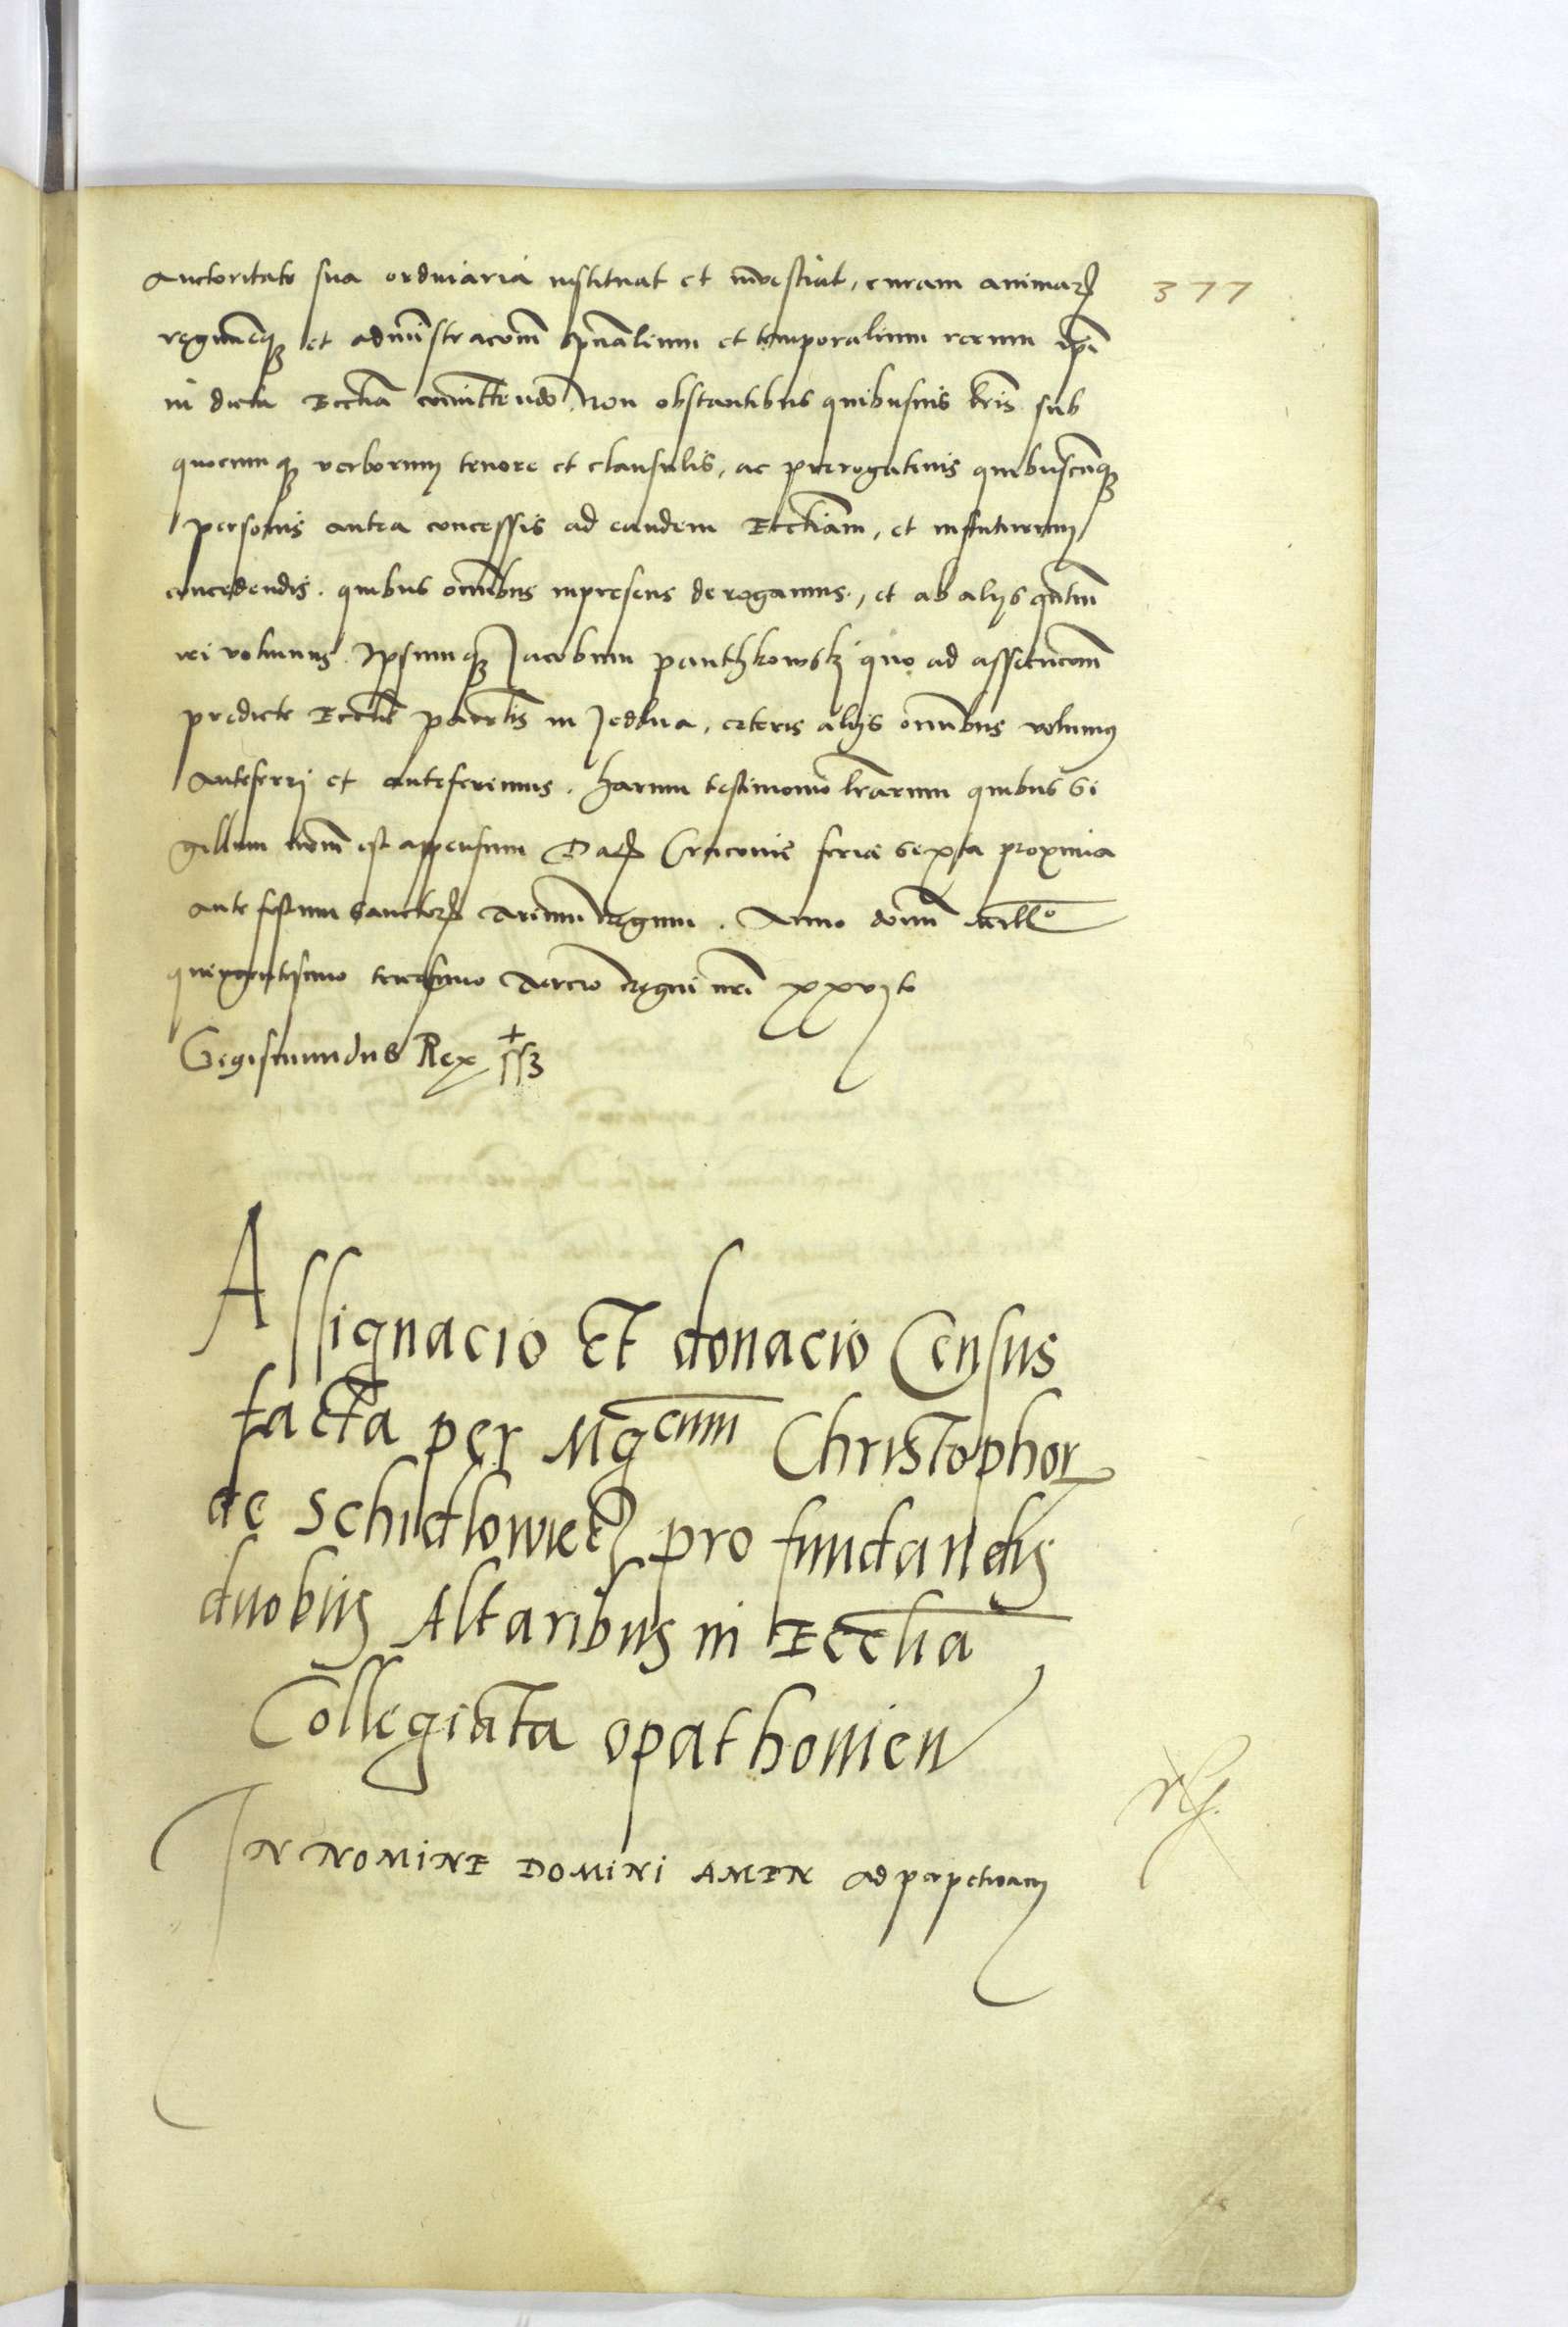 auctoritate sua ordinaria instituat et investiat, curam animarꝝ
377
regimenq̃ et administracõm spũalium et temporalium rerum ip̃i
in dicta Eccl̃ia committendo. Non obstantibus quibusvis l̃ris sub
quocunq̃ verborum tenore et clausulis, ac prerogativis quibuscũq̃
personis antea concessis ad eandem Eccl̃iam, et in futurum
concedendis. quibus om̃ibus in presens derogamus, et ab alijs
volumus. Ipsumq̃ Jacobum panthkowskj quo ad assecucõm
predicte Eccl̃ie p̃arochl̃is in Jedlna, ceteris alijs om̃ibus volumus
anteferrj et anteferimus. harum testimonio l̃rarum quibus si
gillum nr̃m est appensum Datꝝ Cracovie feria sexta proxima
ante festum sanctorꝝ Trium regum. Anno dom̃ mill̃o
quingentesimo tricesimo Tercio regni nr̃i xxvjto
Sigismundus Rex ssz
Assignacio Et donacio Census
facta per Mg̃cum Christophorꝝ
de Schidlowietz pro fundandis
duobus Altaribus in Eccl̃ia
Collegiata opathovien
IN NOMINE DOMINI AMEN ad perpetuam